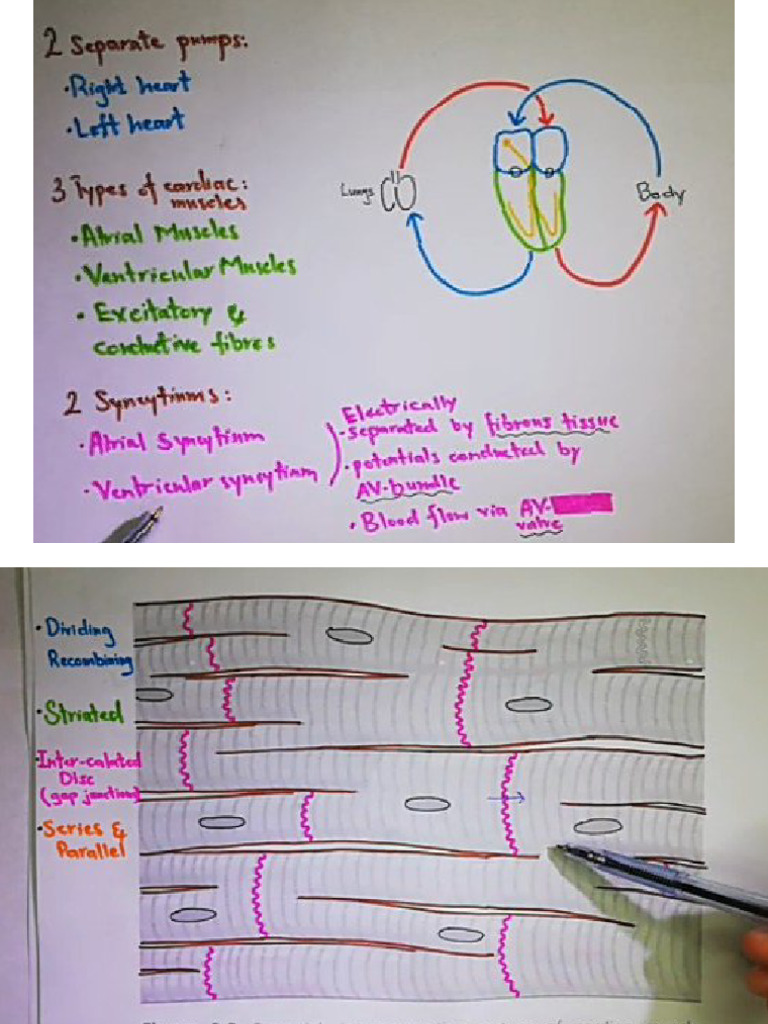 2 Separate pumps:
• Right heart
• Left heart
3 Types of cardiac muscles:
• Atrial Muscles
• Ventricular Muscles
• Excitatory &
conductive fibres
2 Syncytiums:
• Atrial Syncytium
• Ventricular syncytium
Electrically
• separated by fibrous tissue
• potentials conducted by
AV-bundle
• Blood flow via AV-
valve
Lungs
Body
• Dividing
Recombining
• Striated
• Inter-calated
Disc
(gap junction)
• Series &
Parallel